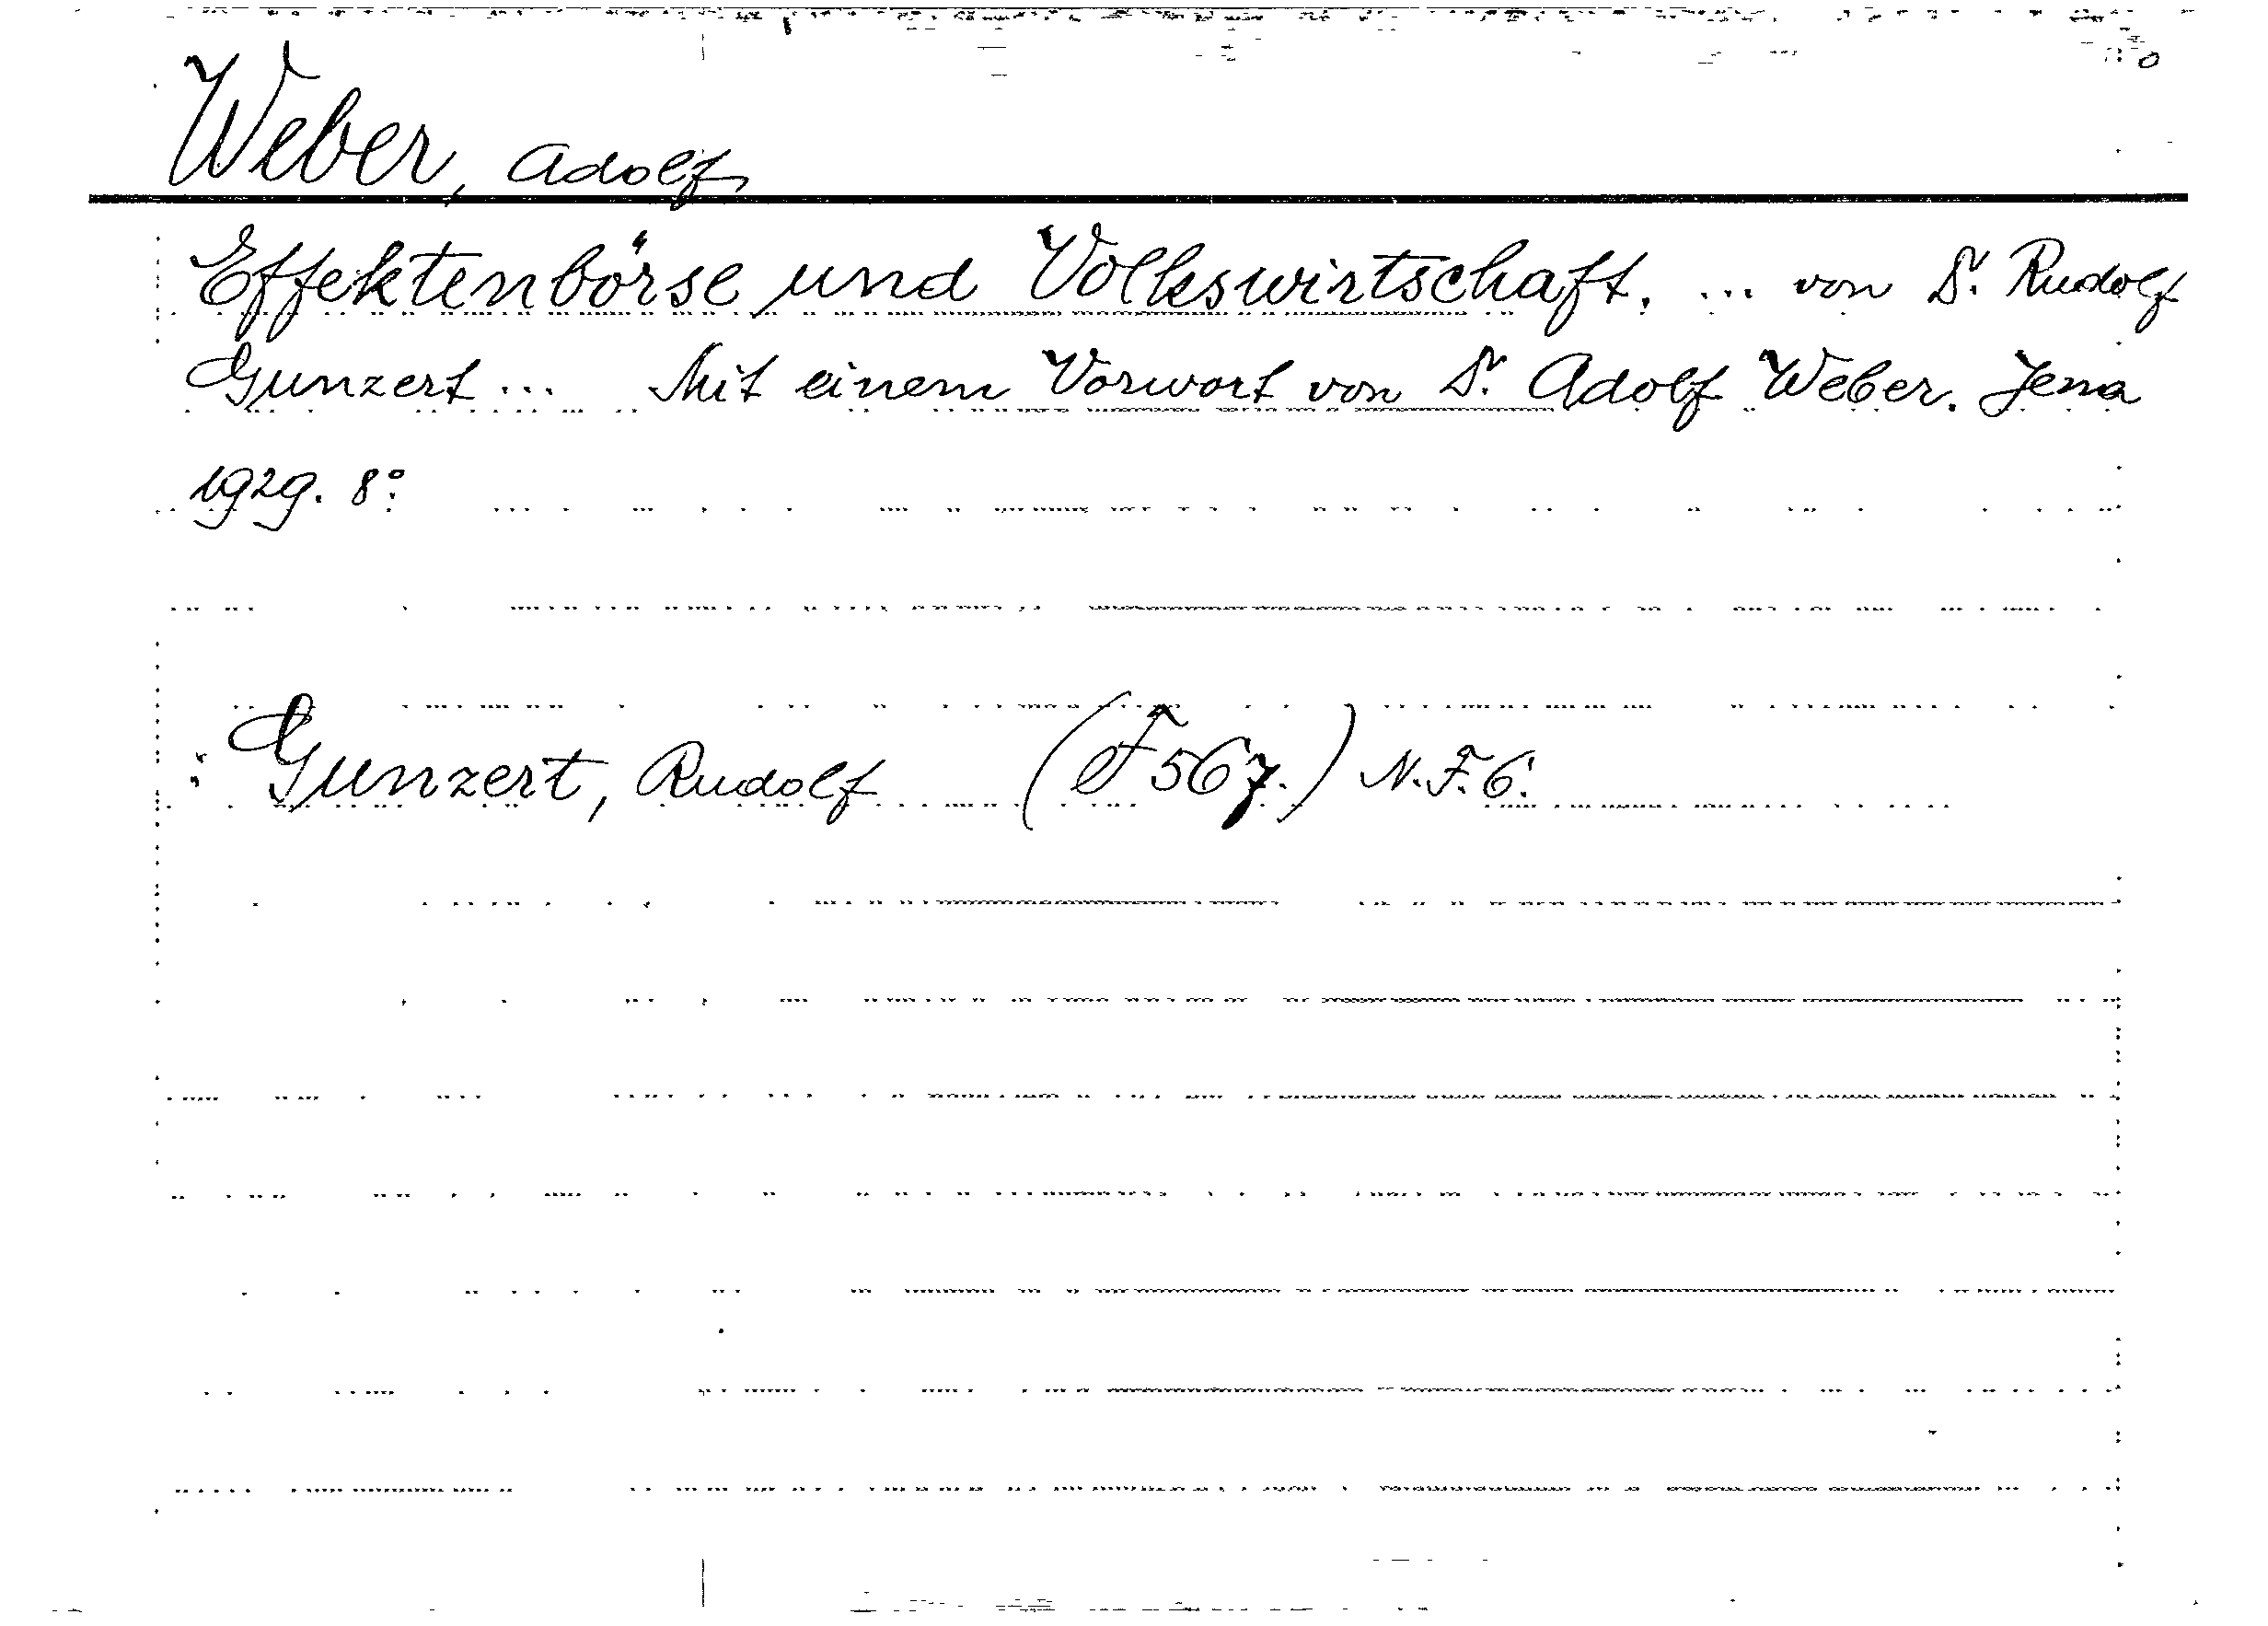 Weber, Adolf
Effektenbörse und Volkswirtschaft. ... von Dr. Rudolf
Gunzert ... Mit einem Vorwort von Dr. Adolf Weber. Jena
1929. 8°.
: Gunzert, Rudolf (F 567.) N.F. 6.